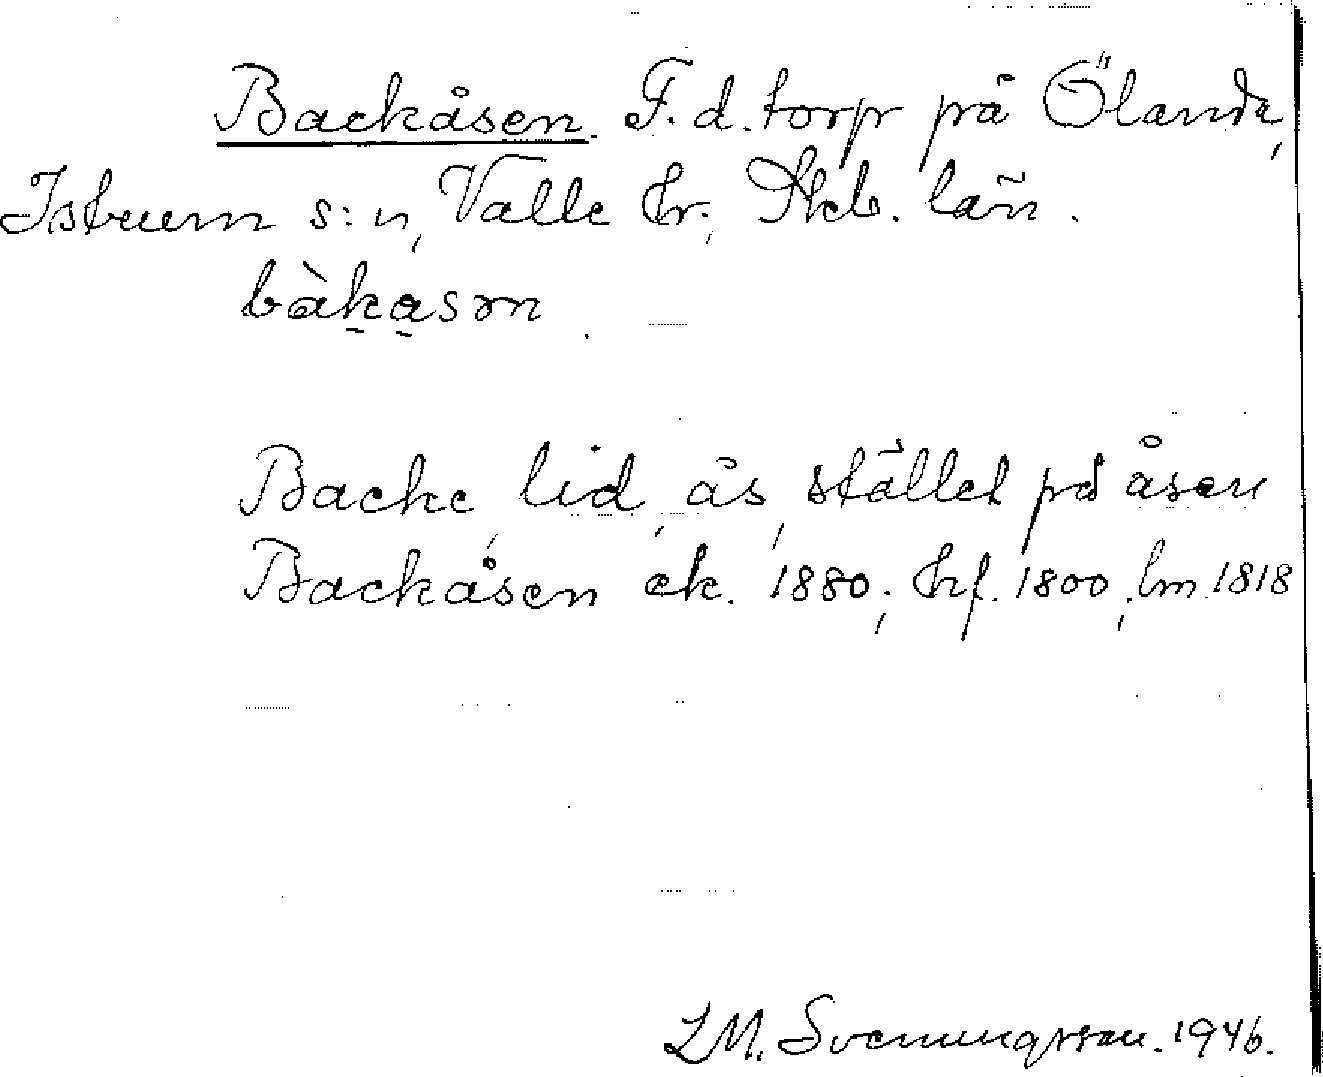 Backåsen. F. d. torp på Ölanda,
Istrum s:n, Valle hr, Skb. län.
bàkason
Backe, lid, ås, stället på åsen
Backåsen ek. 1880; hf. 1800; lm. 1818
L M. Svenungsson. 1946.